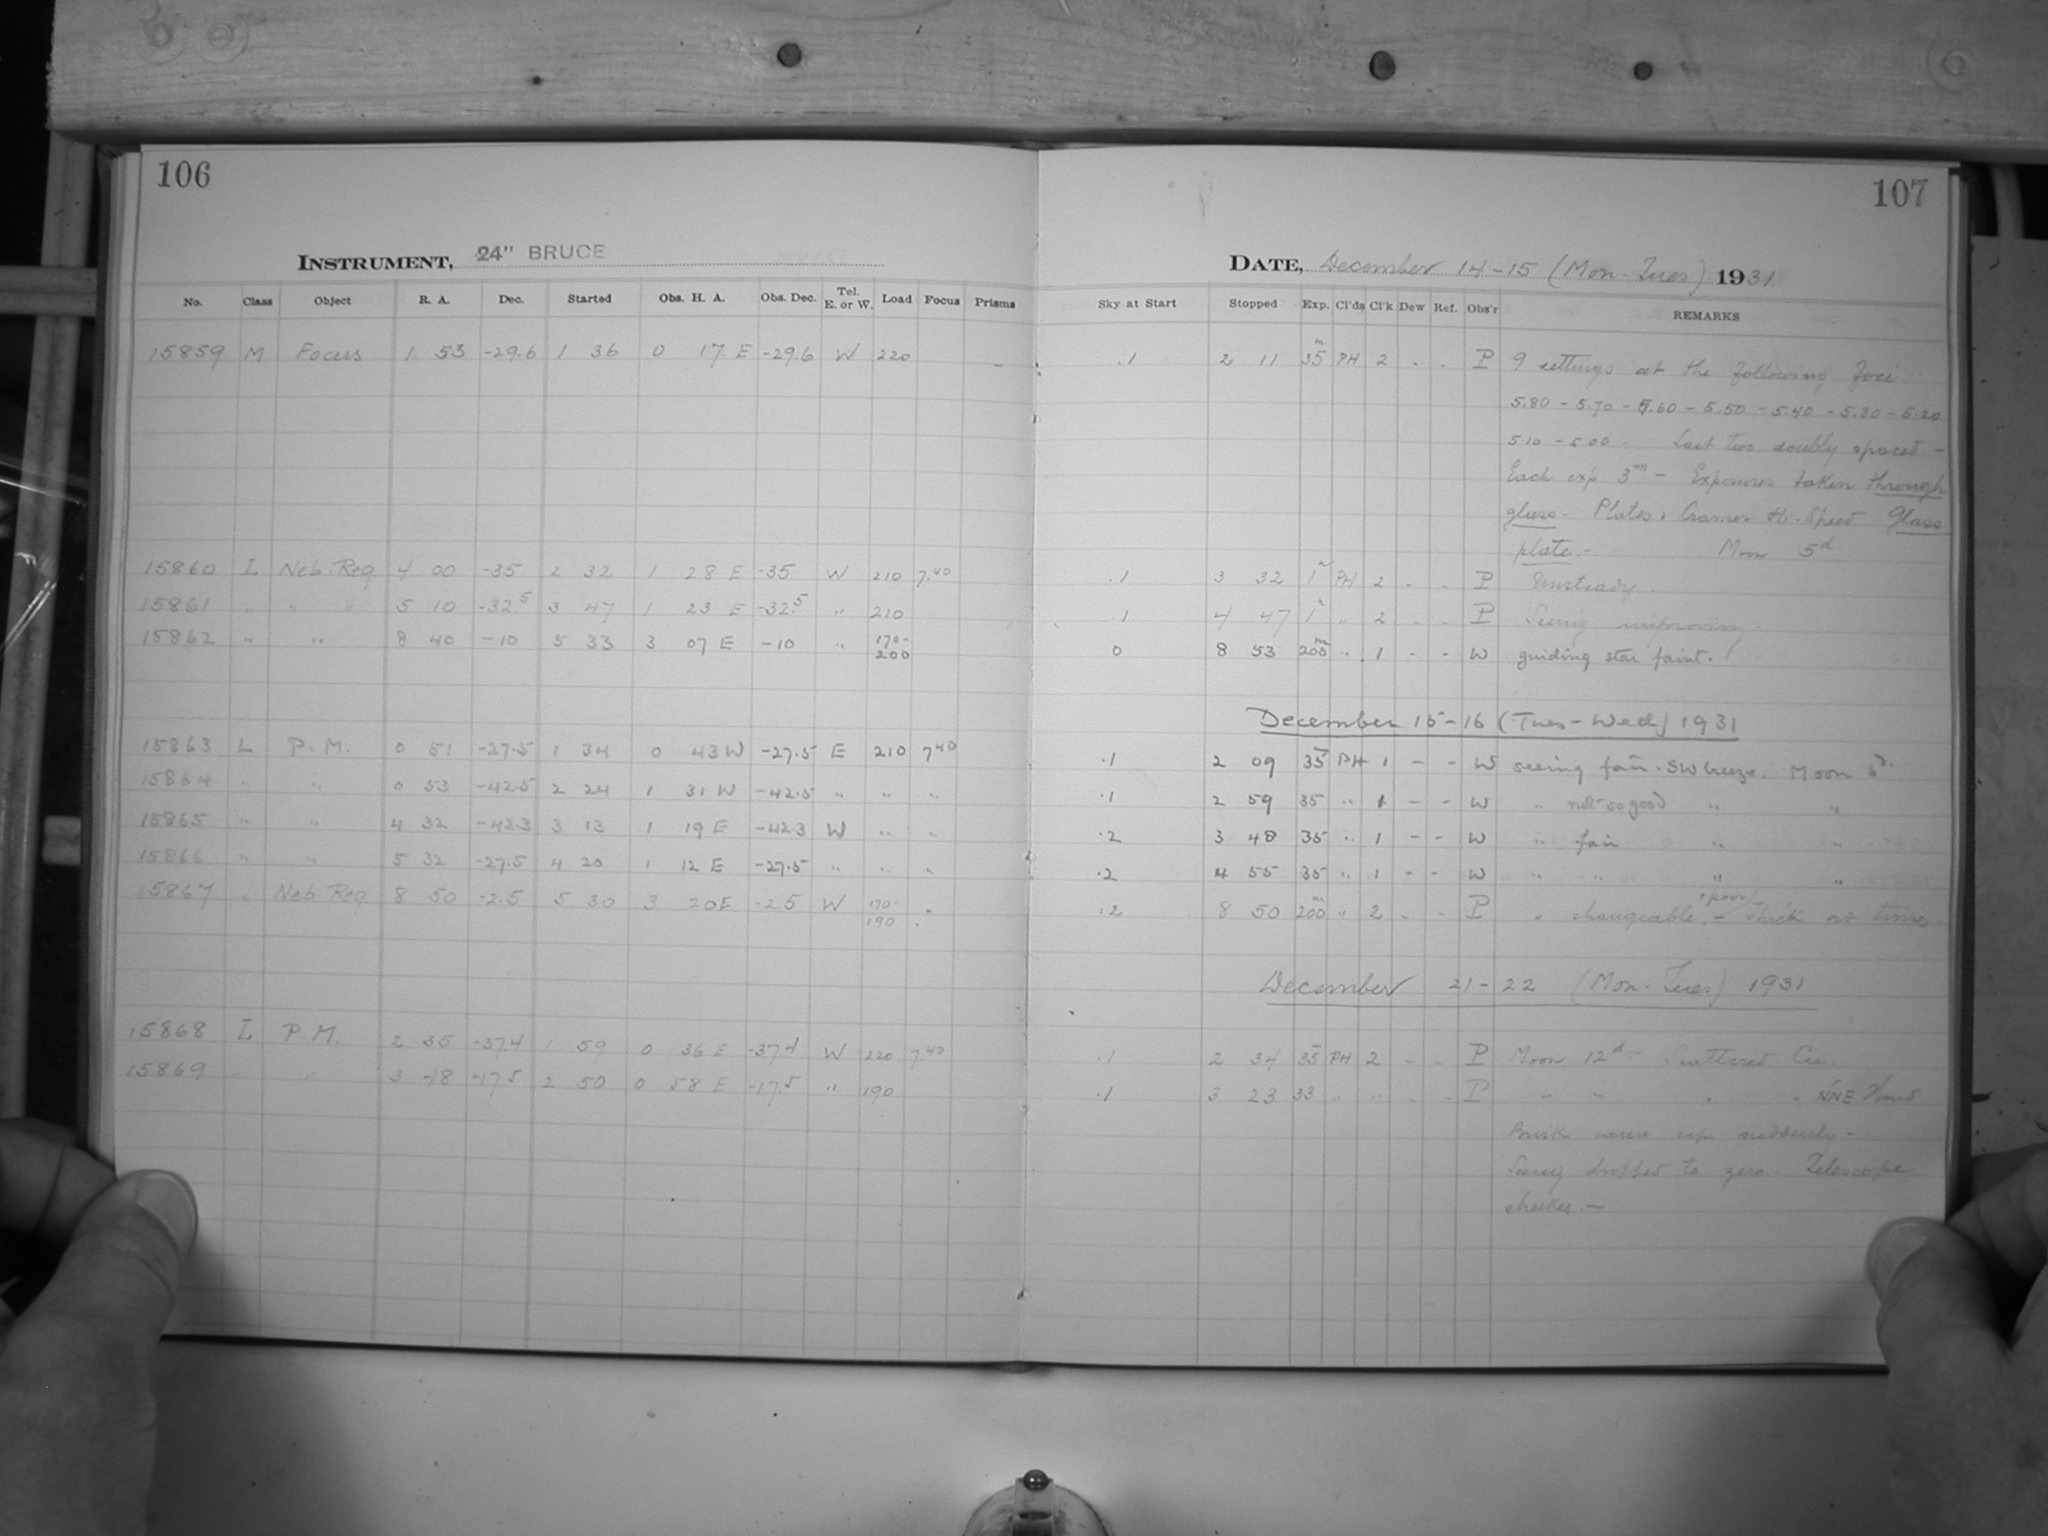 106
107
INSTRUMENT, 24" BRUCE
DATE, December 14-15 (Mon-Tues) 1931
No. Class Object R. A. Dec. Started Obs. H. A. Obs. Dec. Tel. E. or W. Load Focus Prisms Sky at Start Stopped Exp. Cl'ds Cl'k Dew Ref. Obs'r REMARKS
15859 M Focus 1 53 -29.6 1 36 0 17 E -29.6 W 220 .1 2 11 35m PH 2 - - P 9 settings at the following Foci
5.80 - 5.70 - 5.60 - 5.50 - 5.40 - 5.30 - 5.20
5.10 - 5.00 - Last two doubly spaced -
Each exp 3m - Exposures taken through
glass - Plates: Cramer Hi. Speed Glass
plate. - Moon 5d.
15860 L Neb. Reg 4 00 -35 2 32 1 28 E -35 W 210 7.40 .1 3 32 1h PH 2 - - P Unsteady.
15861 " " " 5 10 -32.5 3 47 1 23 E -32.5 " 210 .1 4 47 1h " 2 - - P Seeing improving.
15862 " " 8 40 -10 5 33 3 07 E -10 " 170-200 0 8 53 200m " 1 - - W guiding star faint.
December 15-16 (Tues-Wed) 1931
15863 L P. M. 0 51 -27.5 1 34 0 43 W -27.5 E 210 7.40 .1 2 09 35 PH 1 - - W seeing fair. SW breeze. Moon 6d.
15864 " " 0 53 -42.5 2 24 1 31 W -42.5 " " " .1 2 59 35 " 1 - - W " not so good " "
15865 " " 4 32 -42.3 3 13 1 19 E -42.3 W " " .2 3 48 35 " 1 - - W " fair " "
15866 " " 5 32 -27.5 4 20 1 12 E -27.5 " " " .2 4 55 35 " 1 - - W " " " "
15867 " Neb. Reg 8 50 -2.5 5 30 3 20 E -2.5 W 170-190 " .2 8 50 200m " 2 - - P " changeable + poor! - thick at times.
December 21-22 (Mon-Tues) 1931
15868 L P M. 2 35 -37.4 1 59 0 36 E -37.4 W 220 7.40 .1 2 34 35 PH 2 - - P Moon 12d - Scattered Cu.
15869 " " 3 48 -17.5 2 50 0 58 E -17.5 " 190 .1 3 23 33 " " - - P " " " " NNE Wind
Brisk came up suddenly -
Seeing dropped to zero - Telescope
shakes. -